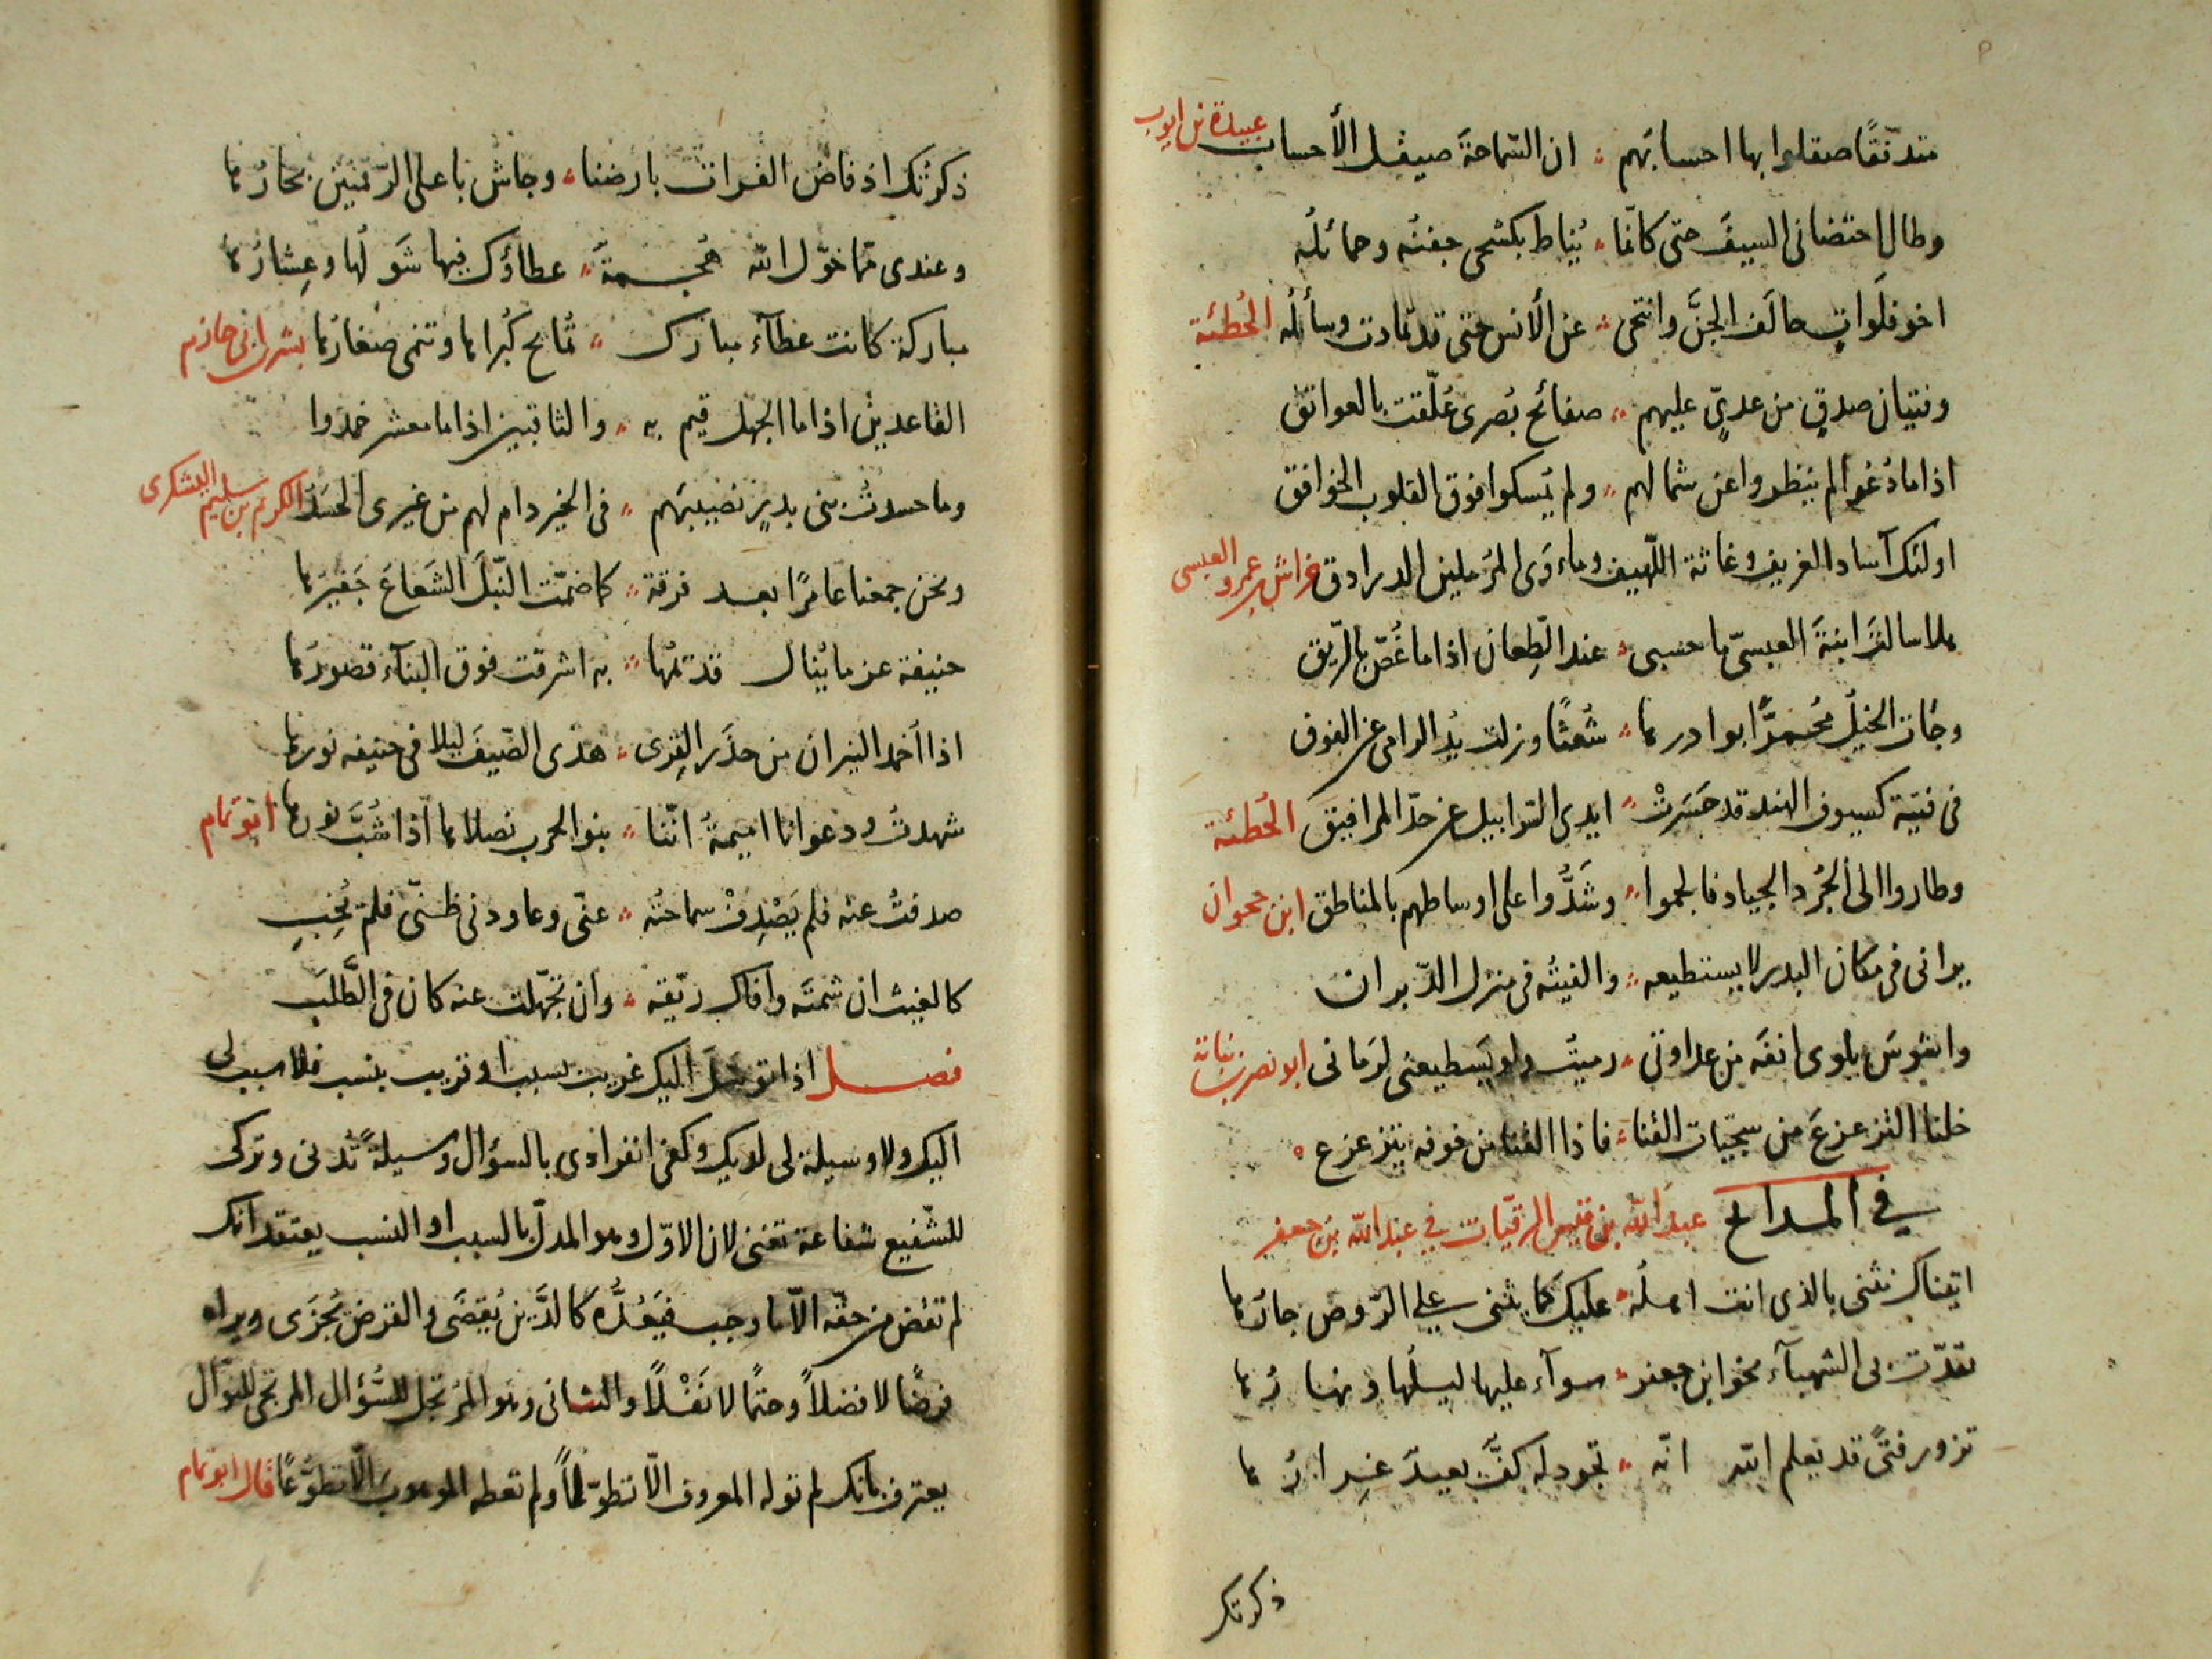 متدفقًا صقلوا بها احسابهم ؞ ان السّماحةَ صيقل الأحساب عبيدة بن ايوب
وطال احتضانى السيفَ حتى كانّما ؞ يُناط بكشحى جفنُه وحمائلُه
اخو فلَواتٍ حالَف الجنَّ وانتحى ؞ عن الأنس حتى قد تمادت وسائلُه الحُطئية
وفتيان صدقٍ من عدىٍّ عليهم ؞ صفائح بُصرى عُلّقت بالعواتق
اذا ما دُعوا لم ينظروا عن شمالهم ؞ ولم يُمسكوا فوق القلوب الخوافق
اولئك آساد الغريف وغاثة اللّهيف وماءوَى المُرملين الدرادق خراش بن عمرو العبسى
هلا سالتَ ابنةَ العبسىّ ما حسبى ؞ عند الطِّعان اذا ما غُصّ بالرّيق
وجات الخيلُ مُحمرًّا بوادرها ؞ شُعثًا وزلت يدُ الرامى عن الفوق
فى فتية كسيوف الهند قد حَسَرتْ ؞ ايدى السّرابيل عن حدّ المرافيق الحُطئية
وطاروا الى الجُرد الجياد فالجموا ؞ وشَدُّوا على اوساطهم بالمناطق ابن جحوان
يرانى فى مكان البدر لا يستطيعه ؞ والفيتُه فى منزل الدّبران
واشوسَ يلوى انفَه من عداوتى ؞ رميتُ ولو يَسطيعنى لرَمانى ابو نصر بن نباتة
خلنا التزعزعَ من سجيّات القنا ؞ فاذا القنا من خوفه يتزعزع ه
في المدايح عبد الله بن قيس الرقيّات في عبد الله بن جعفر
اتيناك نثنى بالذى انت اهلُه ؞ عليك كما يثنى على الرّوض جارُها
تقدّت بى الشهبآء نحو ابن جعفر ؞ سوآء عليها ليلُها ونهارُها
تزور فتًى قد يعلم الله انّه ؞ تجود له كفٌّ بعيدٌ غرارُها
ذكرتك
ذكرتُك اذ فاض الفرات بارضنا ؞ وجاش باعلى الرّقتين بحارُها
وعندى مّما خوّل الله هَجمةٌ ؞ عطاؤك فيها شَولُها وعِشارُها
مباركة كانت عطآء مبارك ؞ تُمانح كُبراها وتنمى صغارُها بشر بن ابى حازم
القاعدينَ اذا ما الجهل قيم به ؞ والثاقبين اذا ما معشر خمدوا
وما حسدتُ بنى بدرٍ نصيبَهم ؞ فى الخير دام لهم من غيرى الحسَدُ الكريم بن سليم اليشكرى
ونحن جمعنا عامرًا بعد فرقة ؞ كما ضمّت النّبلَ الشَعاعَ جَفيرُها
حنيفة عز ما يُنال قديمُها ؞ به اشرقت فوق البنآء قصورُها
اذا أخمد النيران من حذَر القِرى ؞ هدى الضّيفَ ليلا فى حنيفه نورها
شهدتُ ودعوانا اميمةُ انّنا ؞ بنو الحرب نصلاها اذا شُبَّ نورها ابو تمام
صدفتُ عنه فلم يَصْدِفْ سماحتُه ؞ عنّى وعاودنى ظنّى فلم يُخِبِ
كالغيث ان شمتَه وافاك ريّقه ؞ وان تحمّلت عنه كان فى الطَّلَبِ
فصل اذا توسّلَ اليك غريب بسبب او قريب بنسب فلا سبب لى
اليك ولا وسيلة لى لديك وكفى انفرادى بالسؤال وسيلةً تُدنى وتركى
للشّفيع شفاعة تغنى لان الاوّل وهو المدلّ بالسبب او النسب يعتقد انك
لم تقض من حقّه الاّ ما وجب فيَعُدُّه كالدَّين يُقضَى والقرض يُجزَى ويراه
فرضًا لا فضلاً وحتمًا لا نَفْلاً والثانى وهو المُرتجل للسّؤال المرتجى للنوال
يعترف بانك لم توله المعروف الاّ تطوّلاً ولم تعطه الموهوب الاّ تطوّعًا قال ابو تمام